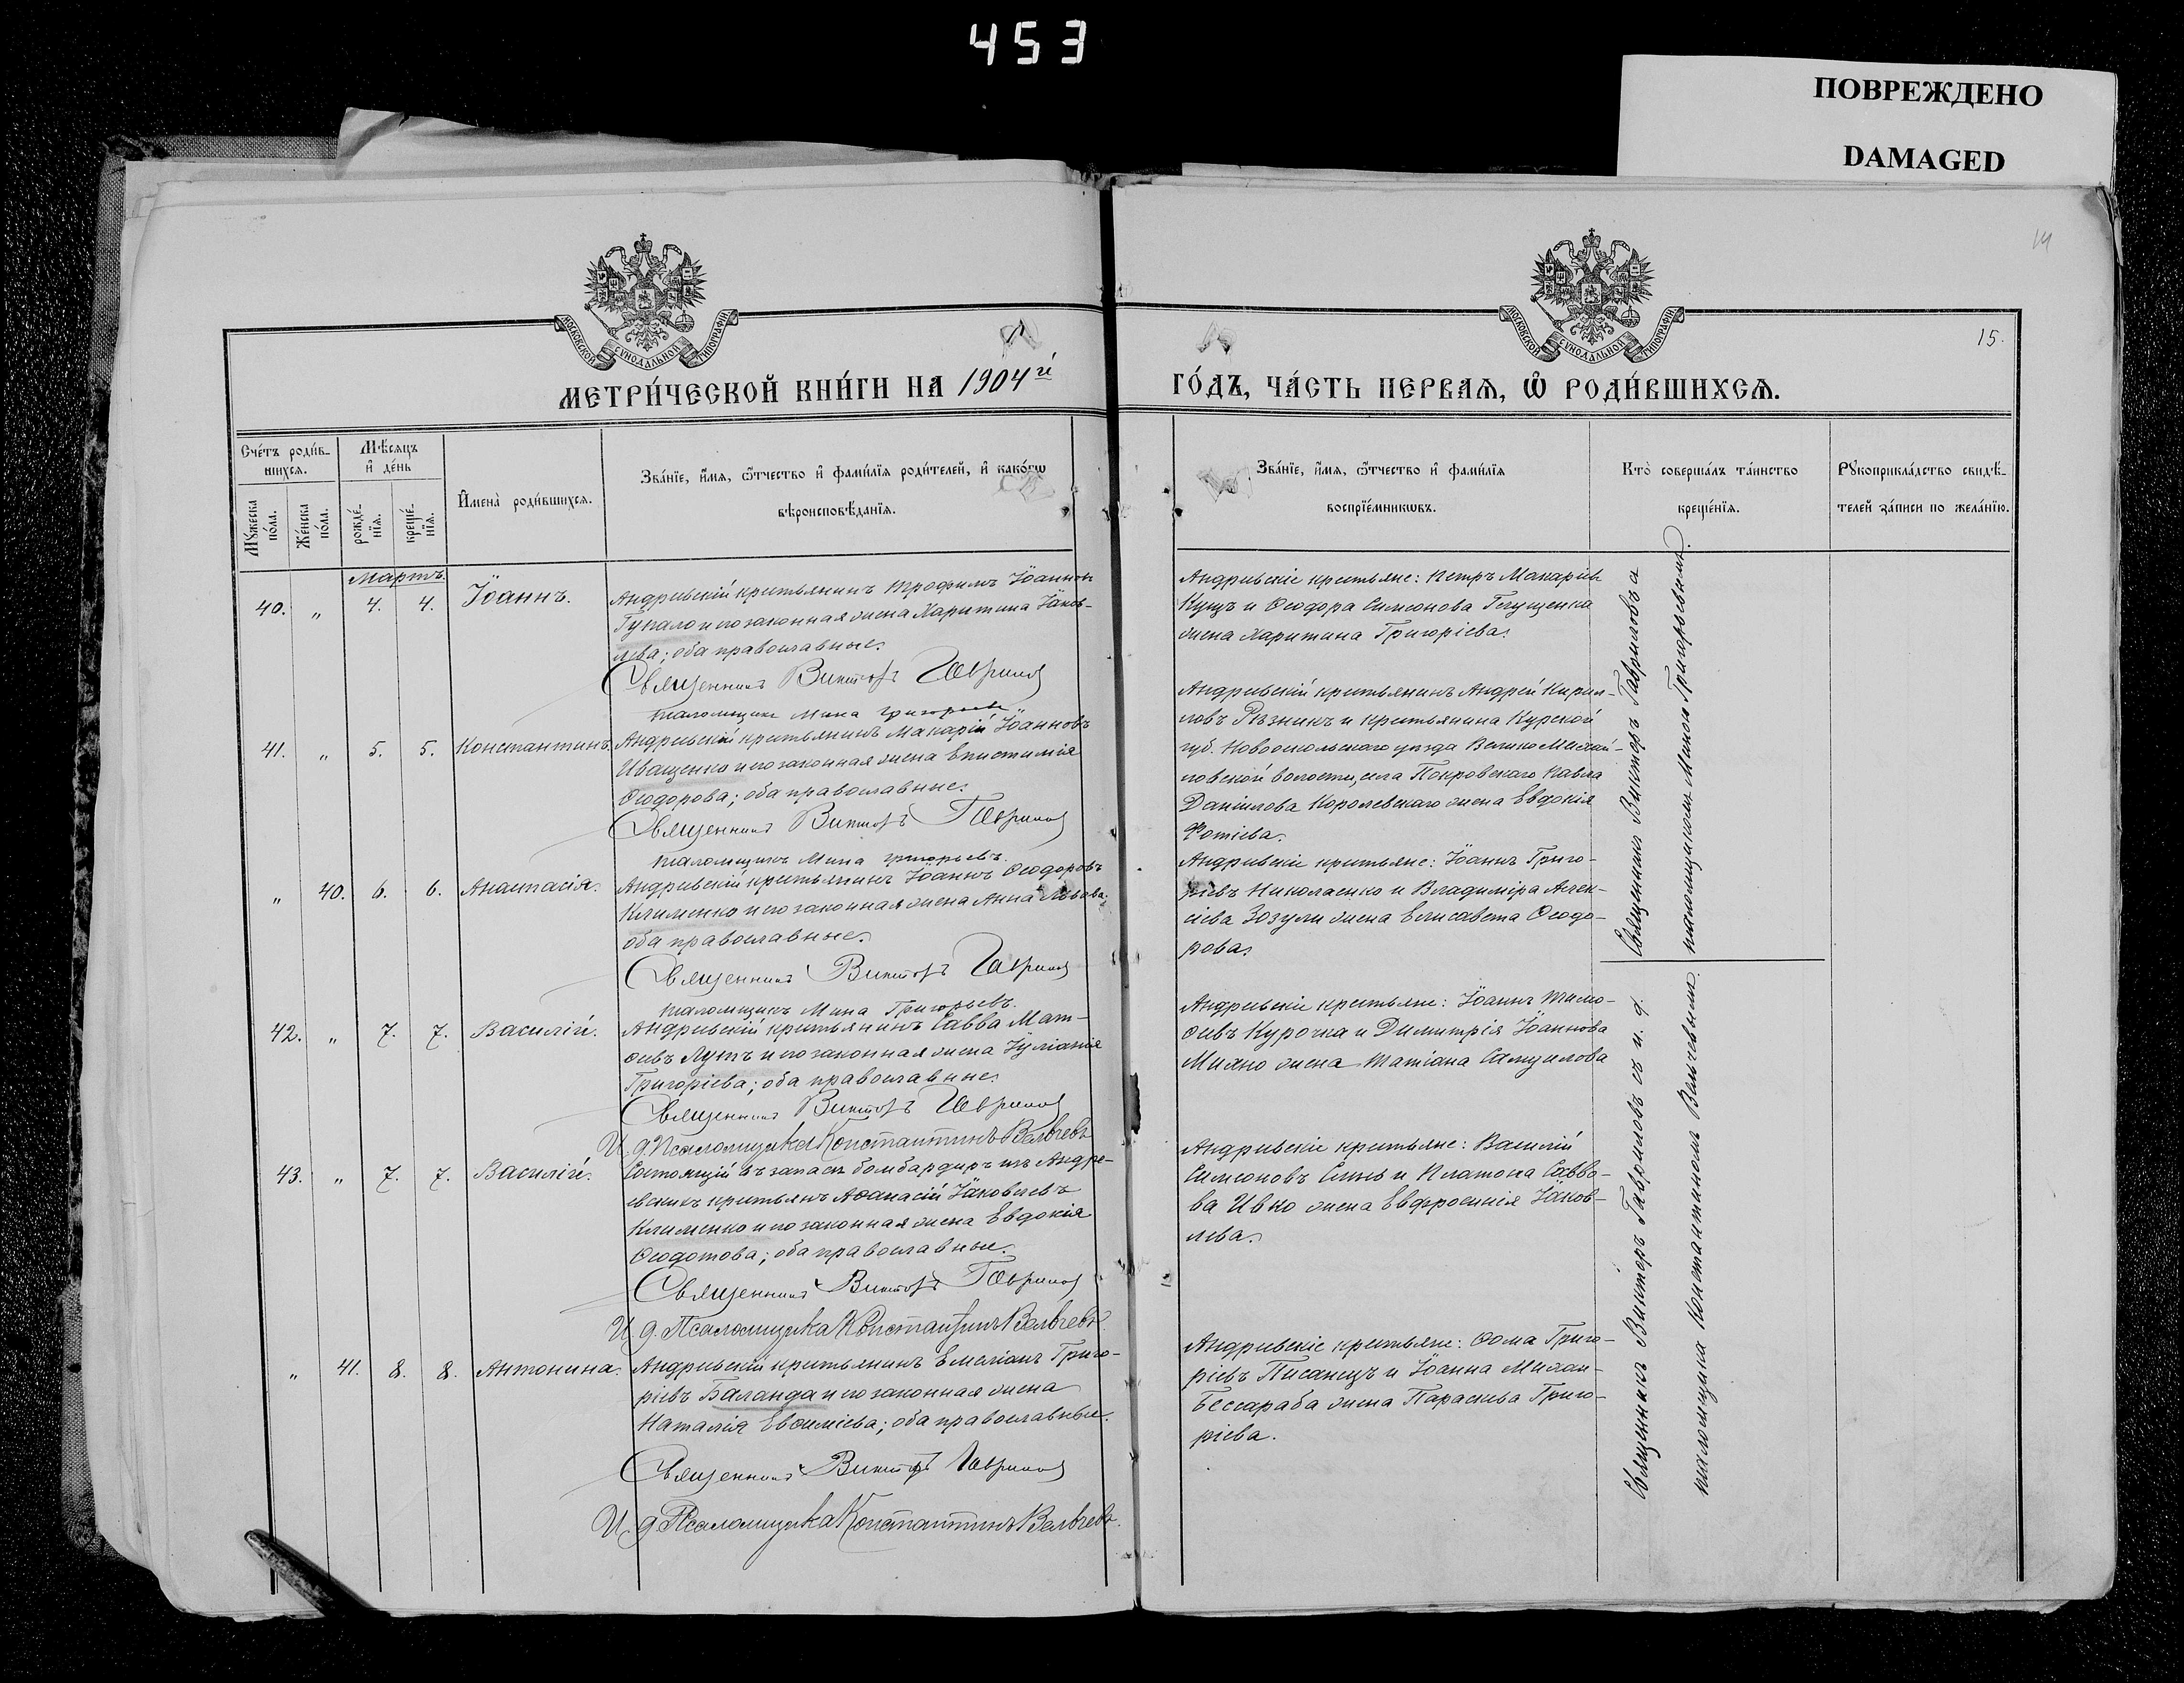 453
ПОВРЕЖДЕНО
DAMAGED
14
15.
МОСКОВСКОЙ СѴНОДАЛЬНОЙ ТИПОГРАФІИ
МОСКОВСКОЙ СѴНОДАЛЬНОЙ ТИПОГРАФІИ
МЕТРИ́ЧЕСКОЙ КНИ́ГИ НА 1904й
ГО́ДЪ, ЧА́СТЬ ПЕРВАЯ, Ѡ РОДИ́ВШИХСЯ.
Сче́тъ роди́в-
шихся.
Мужеска
по́ла.
Же́нска
по́ла.
Мѣ́сяцъ
и де́нь
рожде́-
нїя.
креще́-
нїя.
Имена̀ роди́вшихся.
Зва́нїе, и́мя, ѻ́тчество и фами́лїя роди́телей, и како́гѡ
вѣроисповѣ́данїя.
Зва́нїе, и́мя, ѻ́тчество и фами́лїя
воспрїе́мникѡвъ.
Кто̀ соверша́лъ та́инство
креще́нїя.
Рукоприкла́дство свидѣ́-
телей за́писи по жела́нїю.
Мартъ.
40. " 4. 4. Іоаннъ.
Андреевскій крестьянинъ Трофимъ Іоаннов
Гупало и его законная жена Харитина Іаков-
лева; оба православные.
Священникъ Викторъ Гаврилов
псаломщикъ Мина Григорьевъ
Андреевскіе крестьяне: Петръ Макаріев
Куцъ и Ѳеодора Симеонова Глущенка
жена Харитина Григоріева.
41. " 5. 5. Константинъ.
Андреевскій крестьянинъ Макарій Іоанновъ
Иващенко и его законная жена Епистимія
Ѳеодорова; оба православные.
Священникъ Викторъ Гаврилов
псаломщикъ Мина Григорьевъ.
Андреевскій крестьянинъ Андрей Кирил-
ловъ Рѣзникъ и крестьянина Курской
губ. Новооскольскаго уѣзда Велико Михай-
ловской волости, села Покровскаго Павла
Даніилова Королевскаго жена Евдокія
Фотіева.
" 40. 6. 6. Анастасія.
Андреевскій крестьянинъ Іоаннъ Ѳеодоровъ
Клименко и его законная жена Анна Львова;
оба православные.
Священникъ Викторъ Гаврилов
псаломщикъ Мина Григорьевъ.
Андреевскіе крестьяне: Іоаннъ Григо-
ріевъ Николаенко и Владиміра Алек-
сіева Зозули жена Елисавета Ѳеодо-
рова.
42. " 7. 7. Василій.
Андреевскій крестьянинъ Савва Мат-
ѳеевъ Лутъ и его законная жена Іуліанія
Григоріева; оба православные.
Священникъ Викторъ Гаврилов
И. д. Псаломщика Константинъ Вальчевъ
Андреевскіе крестьяне: Іоаннъ Тимо-
ѳеевъ Курочка и Димитрія Іоаннова
Михно жена Татіана Самуилова
43. " 7. 7. Василій.
Состоящій въ запасѣ бомбардиръ изъ Андре-
евскихъ крестьянъ Аѳанасій Іаковлевъ
Клименко и его законная жена Евдокія
Ѳеодотова; оба православные.
Священникъ Викторъ Гаврилов
И. д. Псаломщика Константинъ Вальчевъ
Андреевскіе крестьяне: Василій
Симеоновъ и Платона Савво-
ва Ивко жена Евфросинія Іаков-
лева.
" 41. 8. 8. Антонина.
Андреевскій крестьянинъ Емеліанъ Григо-
ріевъ Баланда и его законная жена
Наталія Евѳиміева; оба православные.
Священникъ Викторъ Гаврилов
И. д. Псаломщика Константинъ Вальчевъ.
Андреевскіе крестьяне: Ѳома Григо-
ріевъ Писанецъ и Іоанна Михаи-
Бессараба жена Параскева Григо-
ріева.
Священникъ Викторъ Гавриловъ а
псаломщикомъ Миною Григорьевымъ.
Священникъ Викторъ Гавриловъ съ и. д.
псаломщика Константиномъ Вальчевымъ.